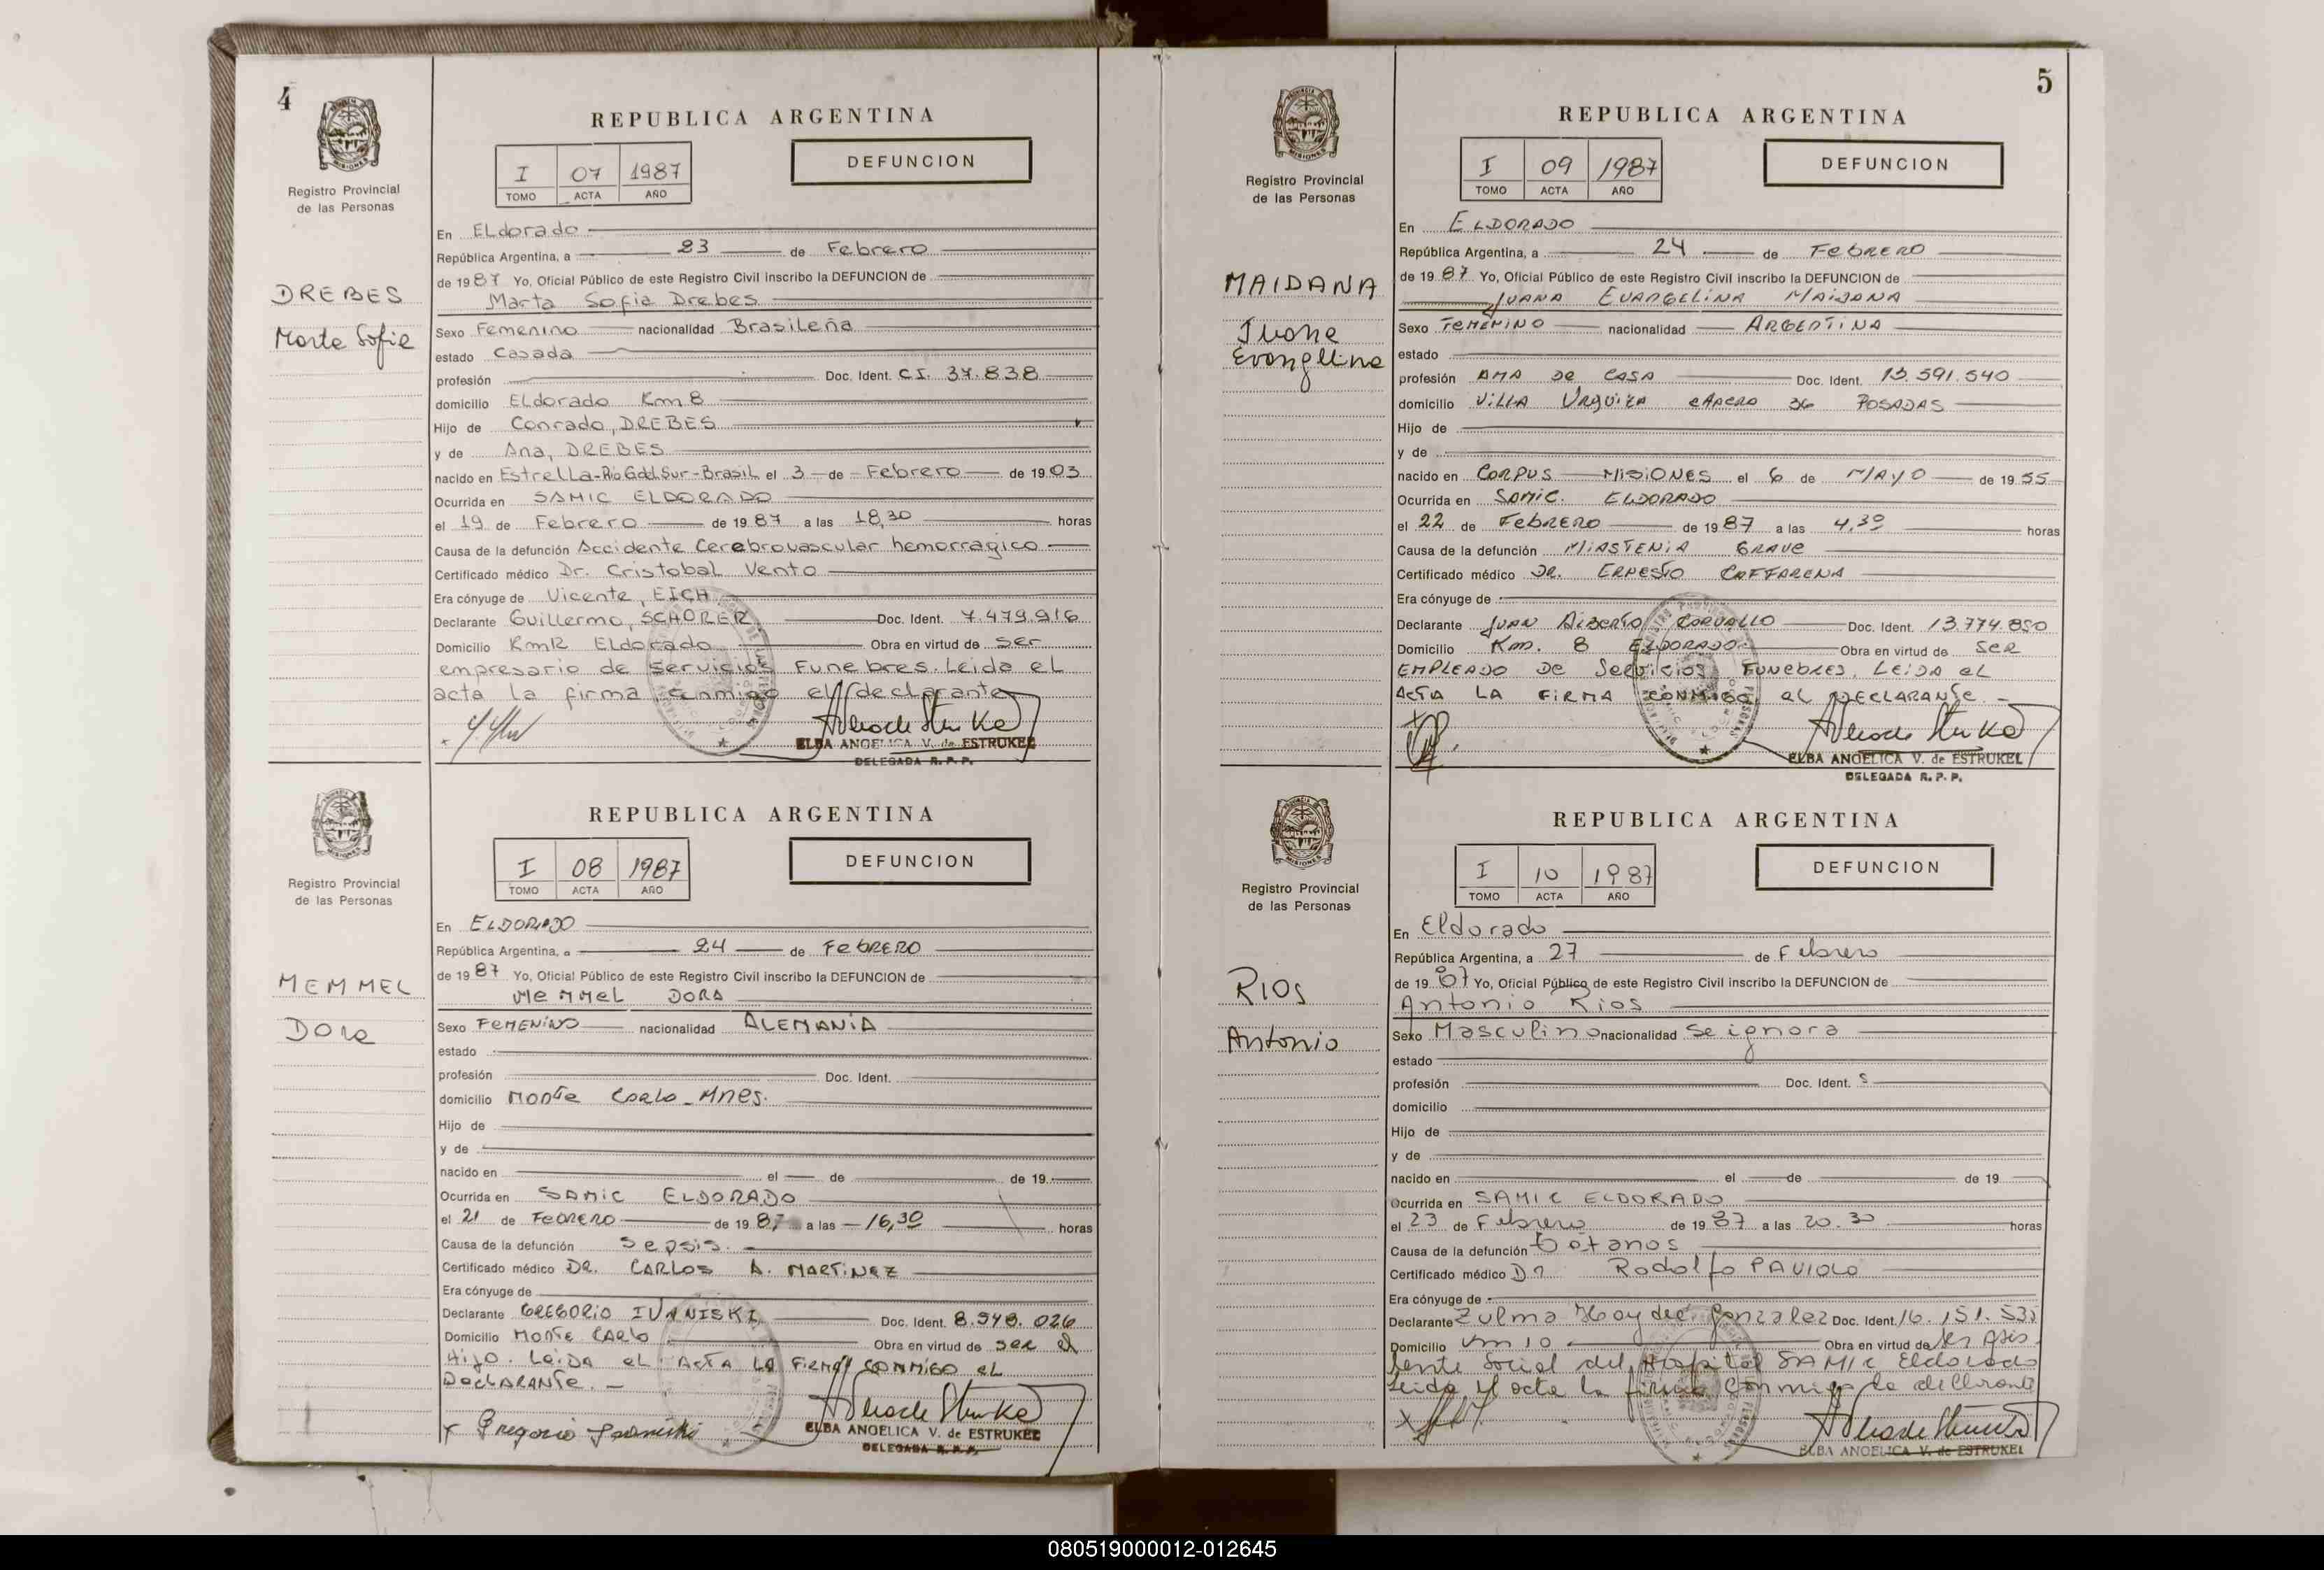 4
Registro Provincial
de las Personas
DREBES
Marta Sofia
REPUBLICA ARGENTINA
I 07 1987
TOMO ACTA AÑO
DEFUNCION
En ELdorado
República Argentina, a 23 de Febrero
de 1987 Yo, Oficial Público de este Registro Civil inscribo la DEFUNCION de
Marta Sofia Drebes
Sexo Femenino nacionalidad Brasileña
estado Casada
profesión Doc. Ident. C.I. 37.838
domicilio ELdorado Km 8
Hijo de Conrado, DREBES
y de Ana, DREBES
nacido en EstreLLa-Rio Gdd. Sur-BrasiL el 3 de Febrero de 1903
Ocurrida en SAMIC ELDORADO
el 19 de Febrero de 1987 a las 18,30 horas
Causa de la defunción Accidente Cerebrovascular hemorragico
Certificado médico Dr. CristobaL Vento
Era cónyuge de Vicente, EICH
Declarante Guillermo, SCHORER Doc. Ident. 7.479.916
Domicilio KmR ELdorado Obra en virtud de ser
empresario de servicios Funebres. Leida eL
acta La firma conmigo eL declarante
ELBA ANGELICA V. de ESTRUKEL
DELEGADA R. P. P.
Registro Provincial
de las Personas
MEMMEL
Dora
REPUBLICA ARGENTINA
I 08 1987
TOMO ACTA AÑO
DEFUNCION
En ELDORADO
República Argentina, a 24 de FebRERO
de 1987 Yo, Oficial Público de este Registro Civil inscribo la DEFUNCION de
MeMMeL DORA
Sexo FeMENiNO nacionalidad ALEMANiA
estado
profesión Doc. Ident.
domicilio MonTe CarLo - Mnes.
Hijo de
y de
nacido en el de de 19
Ocurrida en SAMiC ELDORADO
el 21 de FebRERO de 1987 a las 16,30 horas
Causa de la defunción Sepsis.
Certificado médico DR. CARLOS A. MARTiNEZ
Era cónyuge de
Declarante GREGORiO IVANISKI Doc. Ident. 8.540.026
Domicilio MonTe CARLo Obra en virtud de SeR el
Hijo. LeiDA eL ActA LA FiRMA CONMiGO eL
DeCLARANTe.
x Gregorio Ivaniski
ELBA ANGELICA V. de ESTRUKEL
DELEGADA R. P. P.
5
Registro Provincial
de las Personas
MAIDANA
Juana
Evangelina
REPUBLICA ARGENTINA
I 09 1987
TOMO ACTA AÑO
DEFUNCION
En ELDORADO
República Argentina, a 24 de FebRERO
de 1987 Yo, Oficial Público de este Registro Civil inscribo la DEFUNCION de
JUANA EVANGELiNA MAiDANA
Sexo FeMENiNO nacionalidad ARGENTiNA
estado
profesión AMA De CASA Doc. Ident. 13.591.540
domicilio ViLLA URQUiZA 36 POSADAS
Hijo de
y de
nacido en CORPUS MiSiONeS el 6 de MAYO de 1955
Ocurrida en SAMiC. ELDORADO
el 22 de FebRERO de 1987 a las 4,30 horas
Causa de la defunción MiASTENiA GRAVe
Certificado médico DR. ERNESTO CAFFARENA
Era cónyuge de
Declarante JUAN ALBERTO CARVALLO Doc. Ident. 13.774.850
Domicilio Km. 8 ELDORADO Obra en virtud de SeR
EMPLEADO De SeRViCiOS FUNebRES. LeiDA eL
ActA LA FiRMA CONMiGO eL DECLARANTe.
ELBA ANGELICA V. de ESTRUKEL
DELEGADA R. P. P.
Registro Provincial
de las Personas
RIOS
Antonio
REPUBLICA ARGENTINA
I 10 1987
TOMO ACTA AÑO
DEFUNCION
En Eldorado
República Argentina, a 27 de Febrero
de 1987 Yo, Oficial Público de este Registro Civil inscribo la DEFUNCION de
Antonio Rios
Sexo Masculino nacionalidad se ignora
estado
profesión Doc. Ident.
domicilio
Hijo de
y de
nacido en el de de 19
Ocurrida en SAMIC ELDORADO
el 23 de Febrero de 1987 a las 20.30 horas
Causa de la defunción tétanos
Certificado médico Dr Rodolfo PAVIOLO
Era cónyuge de
Declarante Zulma Haydee Gonzalez Doc. Ident. 16.151.535
Domicilio Km 10 Obra en virtud de ser asis
tente Social del Hospital SAMIC Eldorado
leida el acta la firma conmigo la declarante
ELBA ANGELICA V. de ESTRUKEL
080519000012-012645